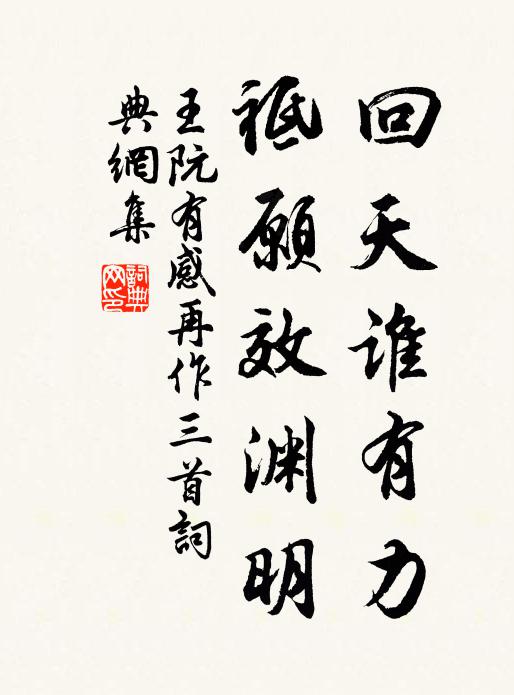 回天誰有力
祗願效渊明
王阮有感再作三首詞
典網集
詞典
网印